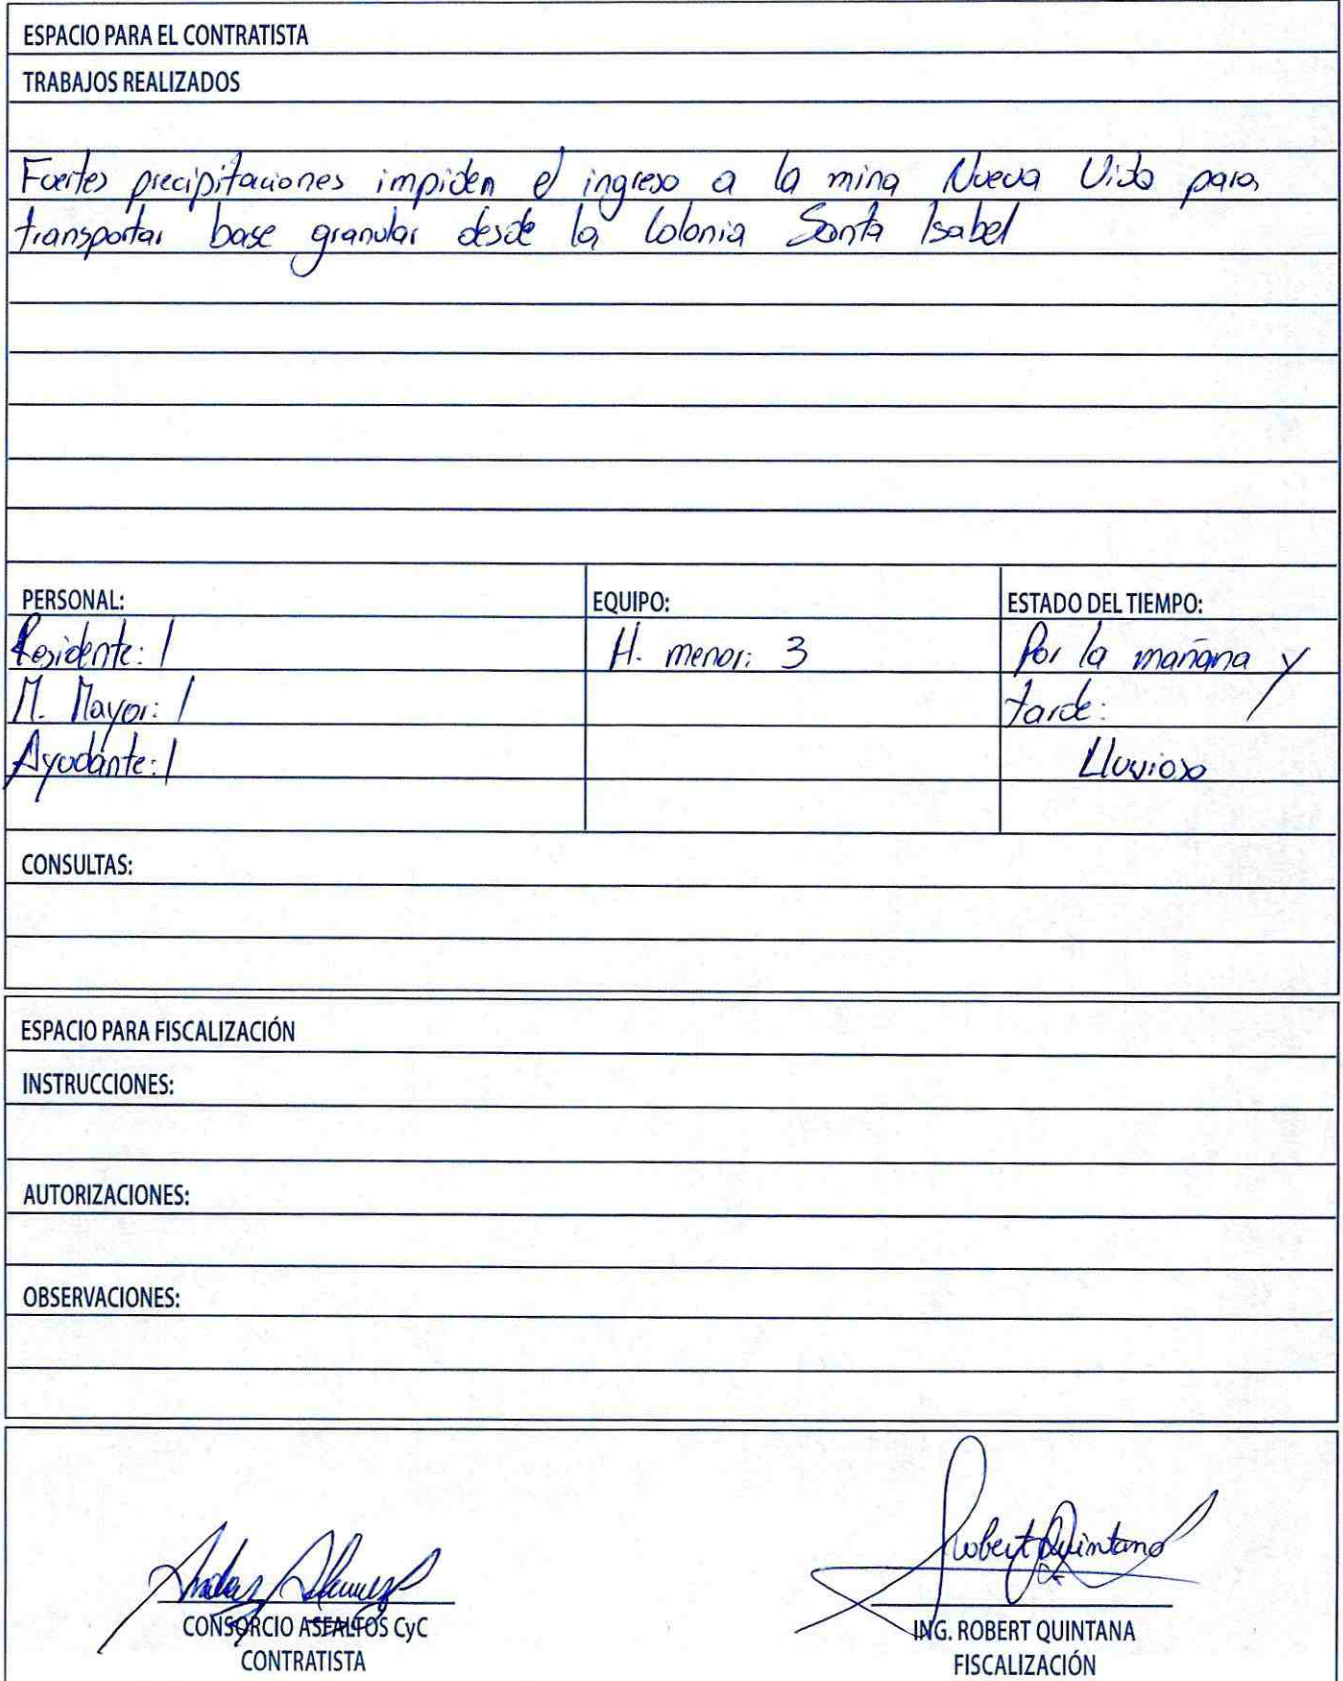 ESPACIO PARA EL CONTRATISTA
TRABAJOS REALIZADOS
Fuertes precipitaciones impiden el ingreso a la mina Nueva Vida para
transportar base granular desde la Colonia Santa Isabel
PERSONAL:
Residente: 1
M. Mayor: 1
Ayudante: 1
EQUIPO:
H. menor: 3
ESTADO DEL TIEMPO:
Por la mañana y
tarde:
Lluvioso
CONSULTAS:
ESPACIO PARA FISCALIZACIÓN
INSTRUCCIONES:
AUTORIZACIONES:
OBSERVACIONES:
CONSORCIO ASFALTOS CyC
CONTRATISTA
Robert Quintana
ING. ROBERT QUINTANA
FISCALIZACIÓN